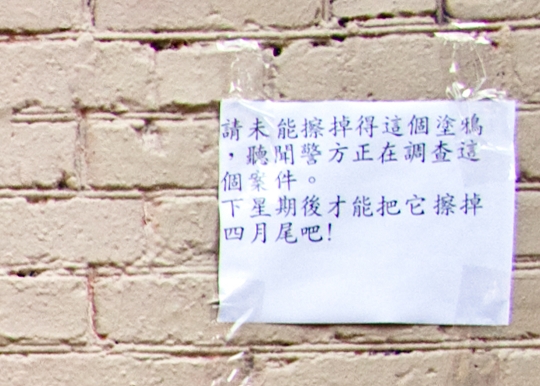 請未能擦掉得這個塗鴉
，聽聞警方正在調查這
個案件。
下星期後才能把它擦掉
四月尾吧!